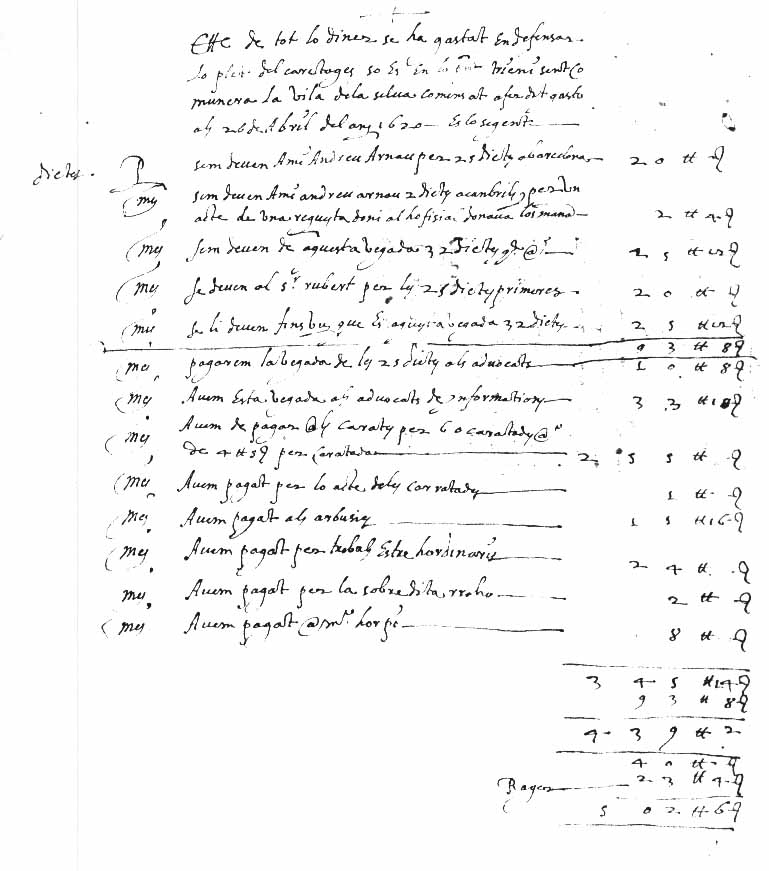 de tot lo diner se ha gastat en defensar
lo plet del caretages so es en lo trieni sent Co
munera la vila dela selva comensat a fer dit gasto
als 26 de Abril del any 1620 Es lo seguent
dietes P sem deven A mi Andreu Arnau per 25 diety a barcelona 20 ₶ 9
my sem deven A mi andreu arnau 2 diety a canbrils, per un
acte de una requesta doni al hofisial 2 ₶ 4 9
my sem deven de aquesta vegada 32 diety 25 ₶ 12 9
my se deven al sr rubert per ly 25 diety primeres 20 ₶ 9
my se li deven fins vuy que Es aquesta vegada 32 diety 25 ₶ 12 9
93 ₶ 8 9
my pagarem la vegada de ly 25 diety als advocats 10 ₶ 8 9
my Avem Esta vegada als advocats de informations 33 ₶ 10 9
my Avem de pagar @ly Caraty per 60 caratady
de 4 ₶ 5 9 per Caratada 255 ₶ 9
my Avem pagat per lo acte dely carratady 1 ₶ 9
my Avem pagat als arbusiy 11 ₶ 16 9
my Avem pagat per trebals Estre hordinaris 24 ₶ 9
my Avem pagat per la sobredita 2 ₶ 9
my Avem pagat @ mr 8 ₶ 9
345 ₶ 14 9
93 ₶ 8 9
439 ₶ 2
40 ₶ 9
23 ₶ 4 9
502 ₶ 6 9